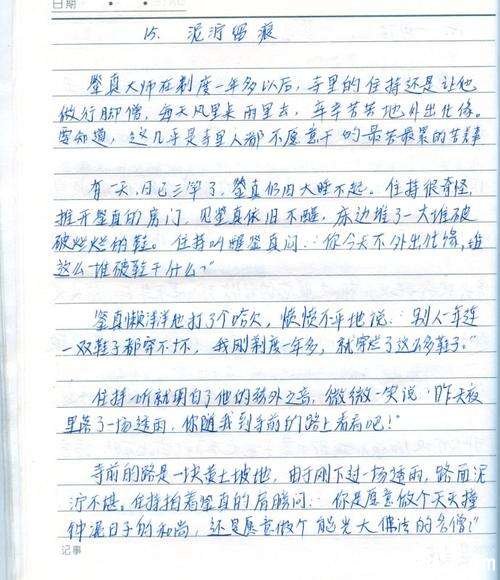 日期
15. 泥泞留痕
鉴真大师在剃度一年多以后，寺里的住持还是让他
做行脚僧，每天风里来雨里去，辛辛苦苦地外出化缘。
要知道，这几乎是寺里人都不愿意干的最苦最累的苦事
有一天，日已三竿了，鉴真仍旧大睡不起。住持很奇怪，
推开鉴真的房门，见鉴真依旧不醒，床边堆了一大堆破
破烂烂的鞋。住持叫醒鉴真问：“你今天不外出化缘，堆
这么一堆破鞋干什么？”
鉴真懒洋洋地打了个哈欠，愤愤不平地说：“别人一年连
一双鞋子都穿不坏，我刚剃度一年多，就穿烂了这么多鞋子。”
住持一听就明白了他的弦外之音，微微一笑说：“昨天夜
里落了一场透雨，你随我到寺前的路上看看吧！”
寺前的路是一块黄土坡地，由于刚下过一场透雨，路面泥
泞不堪。住持拍着鉴真的肩膀问：“你是愿意做个天天撞
钟混日子的和尚，还是愿意做个能光大佛法的名僧？”
记事